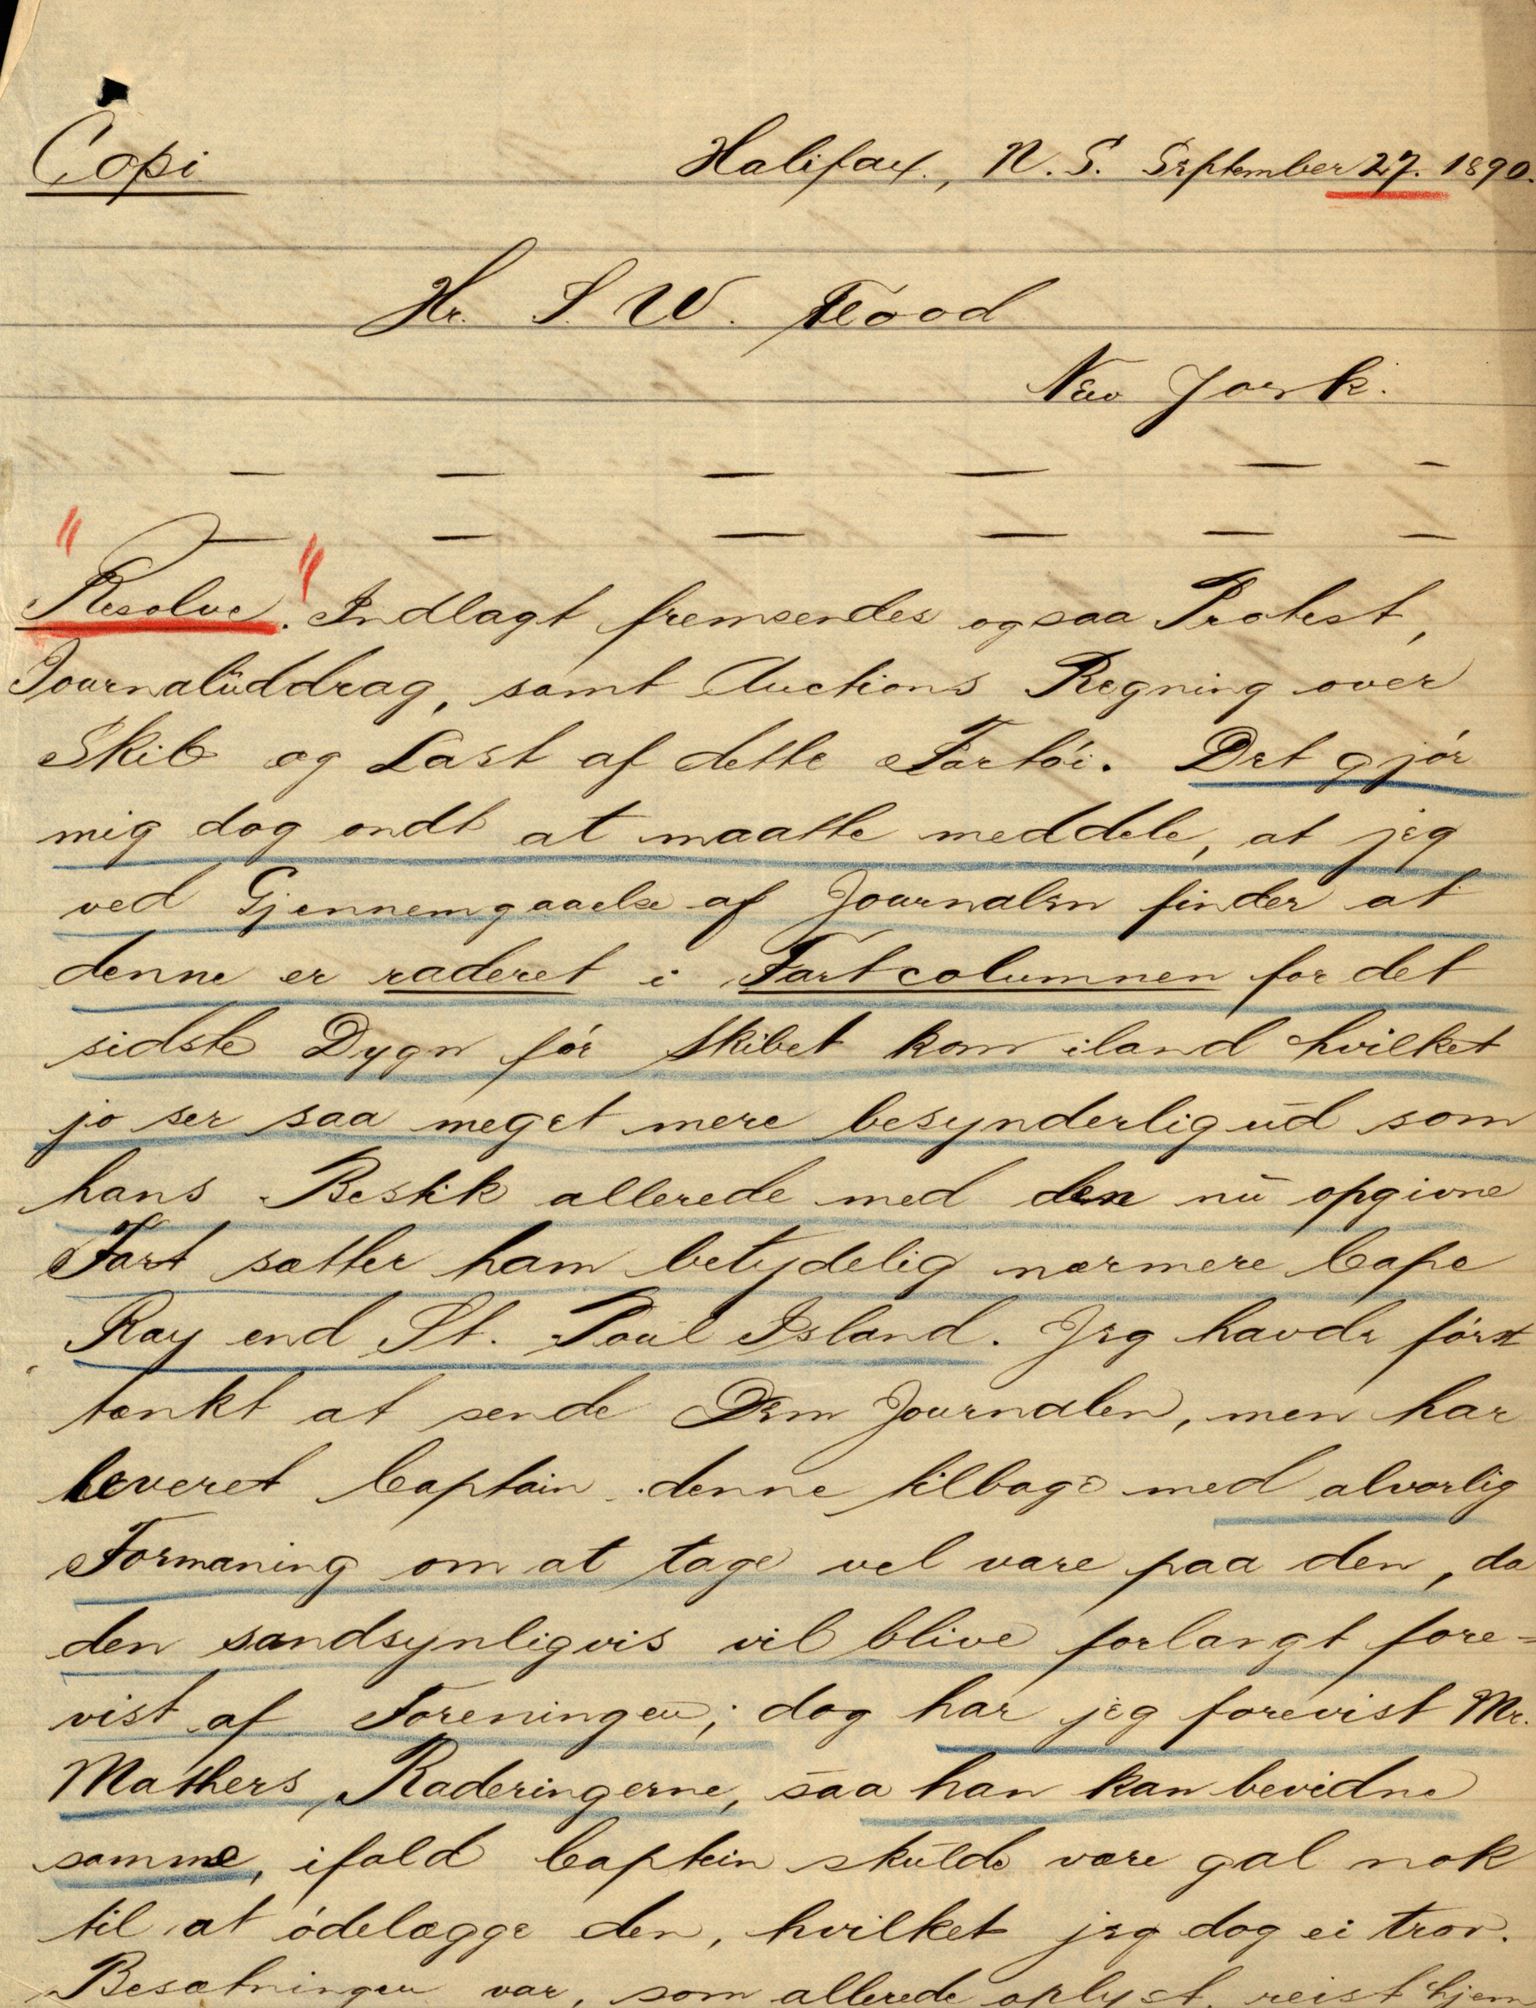 Copi
Halifax, N. S. September 27. 1890.
Hr. S. W. Flood
New York.
"Resolve". Indlagt fremsendes ogsaa Protest,
Journaluddrag, samt Auctions Regning over
Skib og Last af dette Fartói. Det gjór
mig dog ondt at maatte meddele, at jeg
ved Gjennemgaaelse af Journalen finder at
denne er raderet i Fartcolumnen for det
sidste Dygn fór Skibet kom iland hvilket
jo ser saa meget mere besynderlig ud som
hans Bestik allerede med den nu opgivne
Fart sætter ham betydelig nærmere Cape
Ray end St. Paul Island. Jeg havde fórst
tænkt at sende Dem Journalen, men har
leveret Captain denne tilbage med alvorlig
Formaning om at tage vel vare paa den, da
den sandsynligvis vil blive forlangt fore=
vist af Foreningen; dog har jeg forevist Mr.
Mathers Raderingerne, saa han kan bevidne
samme, ifald Captein skulde være gal nok
til at ódelægge den, hvilket jeg dog ei tror.
Besætningen var, som allerede oplyst, reist hjem